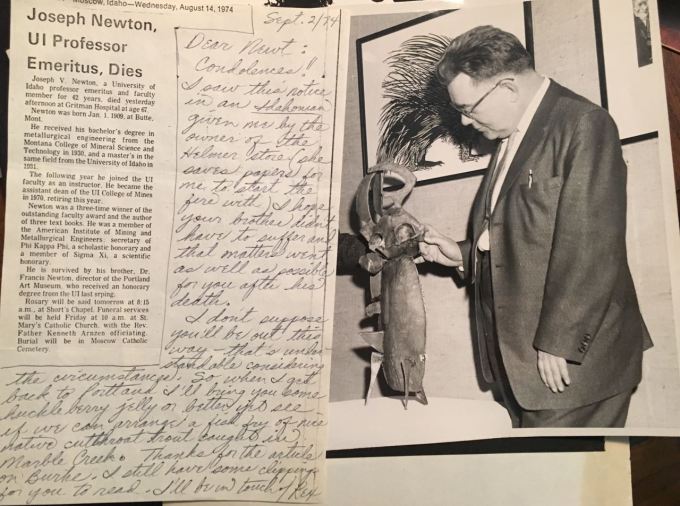 Moscow, Idaho—Wednesday, August 14, 1974
Joseph Newton,
UI Professor
Emeritus, Dies
Joseph V. Newton, a University of
Idaho professor emeritus and faculty
member for 42 years, died yesterday
afternoon at Gritman Hospital at age 67.
Newton was born Jan. 1, 1909, at Butte,
Mont.
He received his bachelor's degree in
metallurgical engineering from the
Montana College of Mineral Science and
Technology in 1930, and a master's in the
same field from the University of Idaho in
1931.
The following year he joined the UI
faculty as an instructor. He became the
assistant dean of the UI College of Mines
in 1970, retiring this year.
Newton was a three-time winner of the
outstanding faculty award and the author
of three text books. He was a member of
the American Institute of Mining and
Metallurgical Engineers; secretary of
Phi Kappa Phi, a scholastic honorary and
a member of Sigma Xi, a scientific
honorary.
He is survived by his brother, Dr.
Francis Newton, director of the Portland
Art Museum, who received an honorary
degree from the UI last srping.
Rosary will be said tomorrow at 8:15
a.m., at Short's Chapel. Funeral services
will be held Friday at 10 a.m. at St.
Mary's Catholic Church, with the Rev.
Father Kenneth Arnzen officiating.
Burial will be in Moscow Catholic
Cemetery.
Sept. 2/74
Dear Newt:
Condolences!!
I saw this notice
in an Idahonian
given me by the
owner of the
Helmer store (she
saves papers for
me to start the
fire with) I hope
your brother didn't
have to suffer and
that matters went
as well as possible
for you after his
death.
I don't suppose
you'll be out this
way - that's under-
standable considering
the circumstances. So when I get
back to Portland I'll bring you some
huckleberry jelly or better yet see
if we can arrange a fish fry of nice
native cutthroat trout caught in
Marble Creek. Thanks for the article
on Burke. I still have some clippings
for you to read. I'll be in touch / Rex